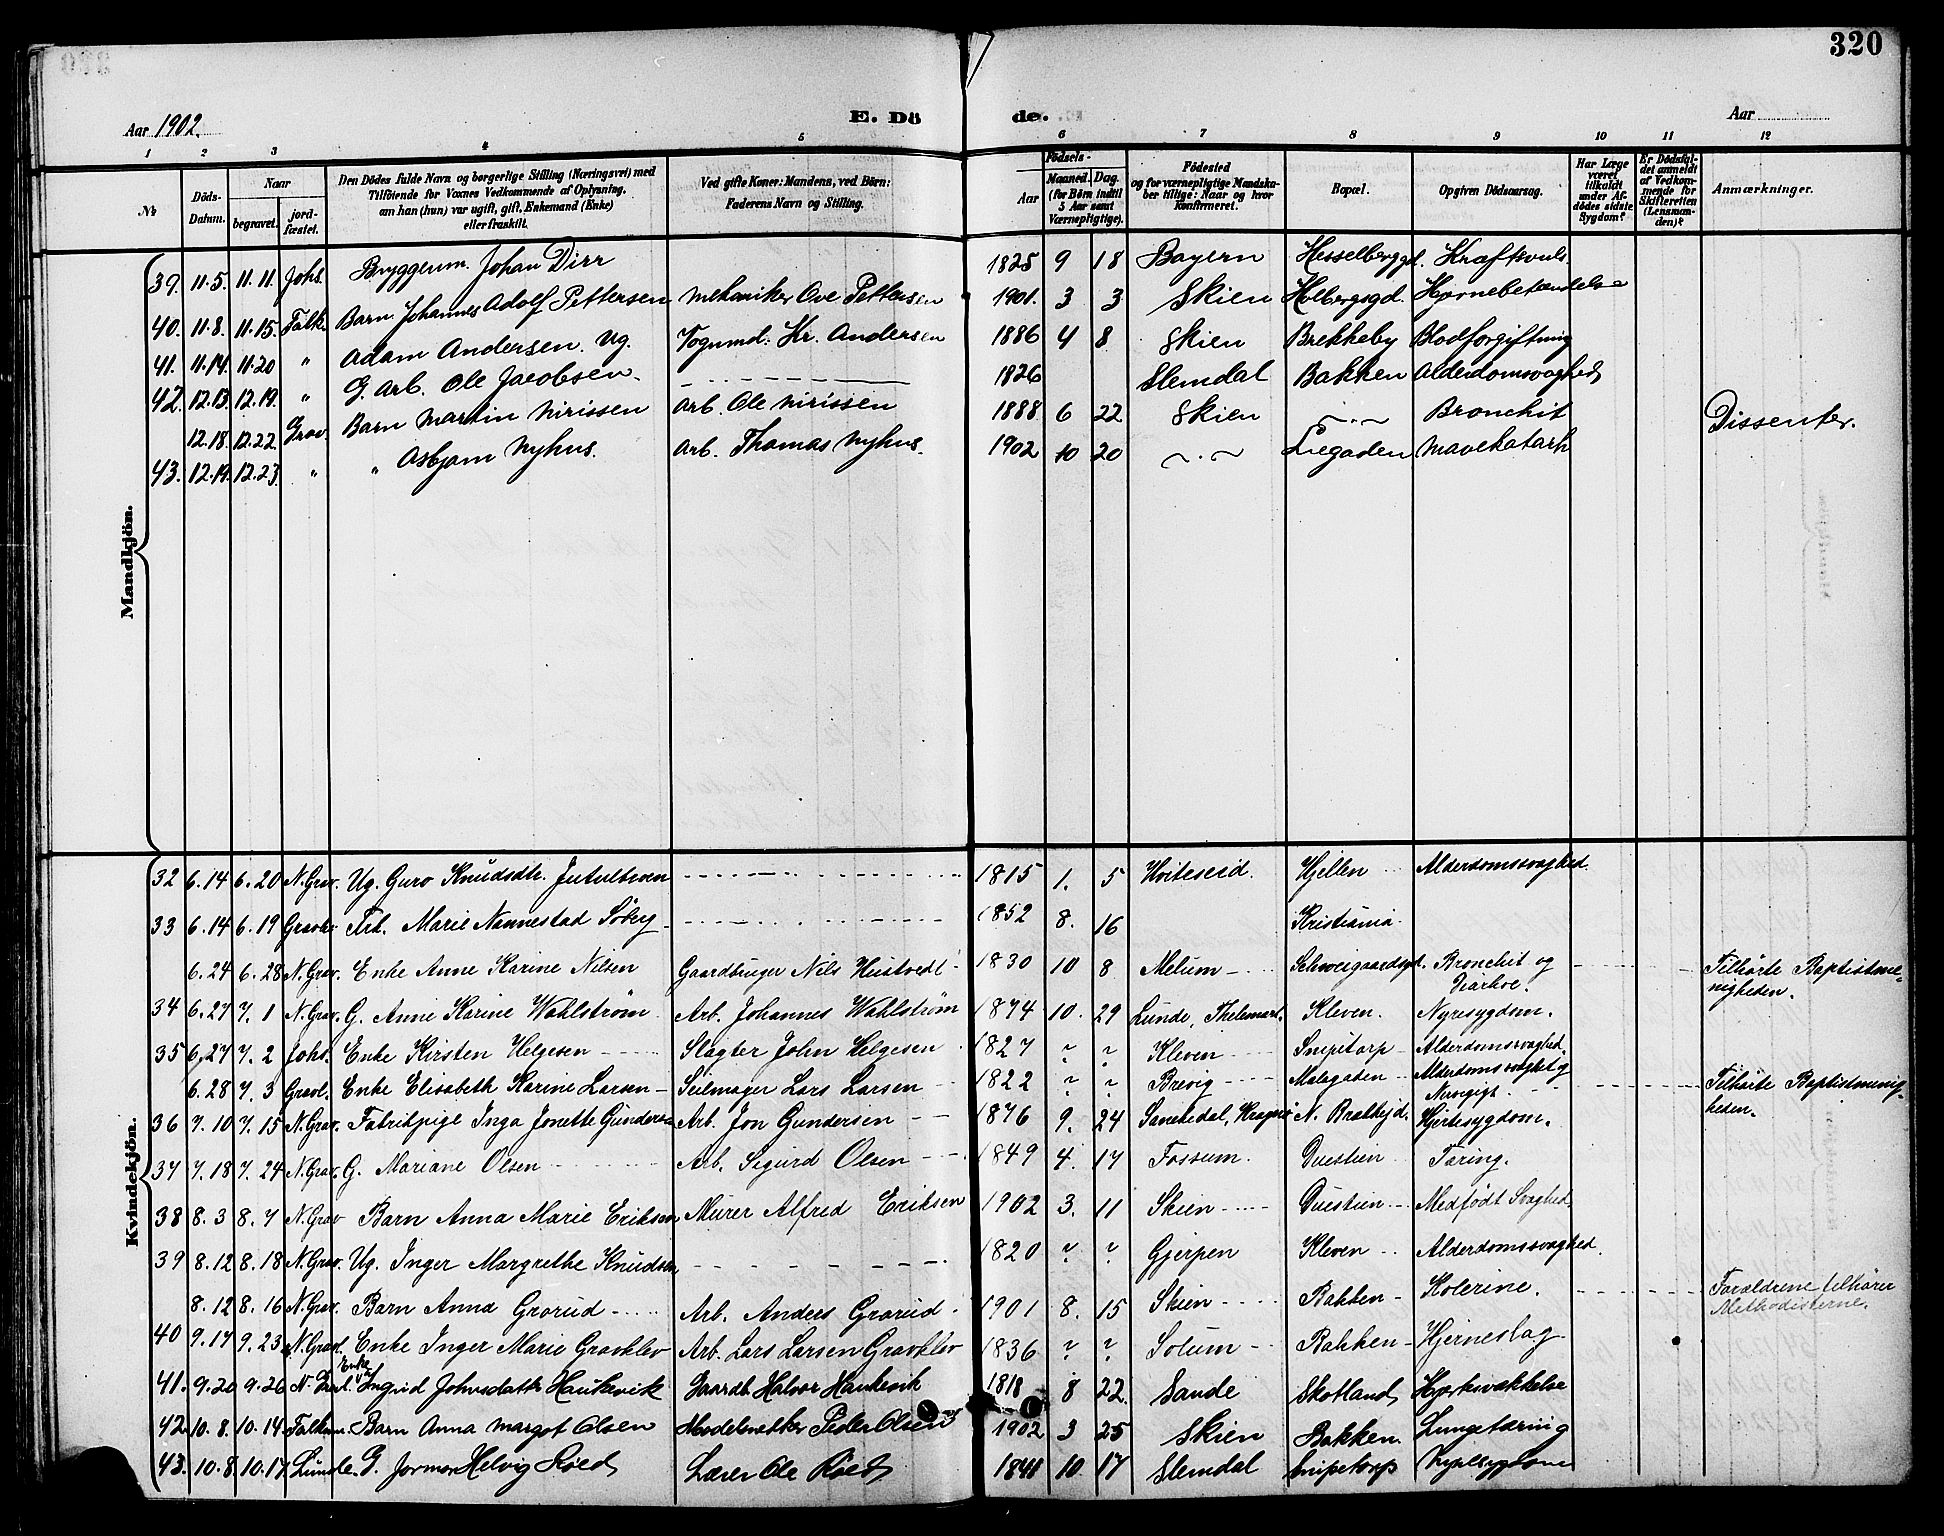 320
Aar 1902.
E. Dö de.
Aar
1 2 3 4 5 6 7 8 9 10 11 12
№
Döds-Datum.
Naar
begravet.
jord-fæstet.
Den Dödes fulde Navn og borgerlige Stilling (Næringsvei) med
Tilföiende for Voxnes Vedkommende af Oplysning,
om han (hun) var ugift, gift, Enkemand (Enke)
eller fraskilt.
Ved gifte Koner: Mandens, ved Börn:
Faderens Navn og Stilling.
Födsels-
Aar
Maaned. Dag.
(for Börn indtil
5 Aar samt
Værnepligtige).
Födested
og for værnepligtige Mandska-
ber tillige: Naar og hvor
konfirmeret.
Bopæl.
Opgiven Dödsaarsag.
Har Læge
været
tilkaldt
under Af-
dödes sidste
Sygdom?
Er Dödsfal-
det anmeldt
af Vedkom-
mende for
Skifteretten
(Lensman-
den)?
Anmærkninger.
Mandkjön.
39. 11.5. 11.11. Johs. Bryggerm. Johan Dirr 1825 9 18 Bayern Hesselberggd. Kræftsvuls.
40. 11.8. 11.15. Falk. Barn Johannes Adolf Pettersen Mekaniker Ove Pettersen 1901. 3 3 Skien Holbergsgd. Hjernebetændelse
41. 11.14. 11.20 " Adam Andersen. Ug. Vognmd. Kr. Andersen 1886 4 8 Skien Brekkeby Blodforgiftning
42. 12.13. 12.19. " G. Arb. Ole Jacobsen. 1826 Slemdal Bakken Alderdomssvaghed
12.18. 12.22. Grav. Barn Martin Nirissen Arb. Ole Nirissen 1888 6 22 Skien Bronchit Dissenter.
43. 12.19. 12.23. " " Asbjørn Nyhus. Arb. Thomas Nyhus. 1902 10 20 Liegaden Mavekatarh
Kvindekjön.
32 6.14 6.20 N.Grav. Ug. Guro Knudsdtr. 1815 1. 5 Hviteseid. Hjellen Alderdomssvaghed.
33 6.14 6.19 Frk. Marie Nannestad 1852 8. 16 Kristiania
6.24 6.28 N.Grav. Enke Anne Karine Nilsen Gaardbruger Nils Hustvedt 1830 10 8 Melum Schweigaardsgd. Bronchit og
Diarhoe. Tilhørte Baptistme-
nigheden.
34 6.27 7.1 N.Grav. G. Anne Karine Wahlstrøm Arb. Johannes Wahlstrøm 1874 10. 29 Lunde, Thelemark. Kleven. Nyresygdom.
35 6.27 7.2 Johs. Enke Kirsten Helgesen Slagter John Helgesen 1827 ? ? Kleven Snipetorp Alderdomssvaghed.
6.28 7.3 Gravl. Enke Elisabeth Karine Larsen Seilmager Lars Larsen 1822 ? ? Brevig Malegaden Alderdomssvaghet og
Tilhørte Baptistmenig-
heden.
36 7.10 7.15 N.Grav. Fabrikpige Inga Jonette Gundersen Arb. Jon Gundersen 1876 9. 24 Sannikedal, Kragerø N. Hjertesygdom.
37 7.18 7.24 N.Grav. G. Mariane Olsen Arb. Sigurd Olsen 1849 4. 17 Fossum. Duestien Tæring.
38 8.3 8.7 N.Grav Barn Anna Marie Eriksen Murer Alfred Eriksen 1902 3. 11 Skien Duestien Medfödt Svaghed.
39 8.12 8.18 N.Grav. Ug. Inger Margrethe Knudsen 1820 ? ? Gjerpen Kleven Alderdomssvaghed.
8.12 8.16 N.Grav. Barn Anna Grorud Arb. Anders Grorud 1901 8. 15 Skien Bakken Kolerine. Forældrene tilhører
Methodisterne.
40 9.17 9.23 N.Gravl. Enke Inger Marie Gravklev Arb. Lars Larsen Gravklev 1836 ? ? Solum Bakken Hjerneslag
41. 9.20 9.26 N.Gravl. Enke Ingrid Johnsdatter Haukevik Gaardb. Halvor Haukevik 1818 8 22 Sande Skotland Hjertesvækkelse
42. 10.8. 10.14. Falkum. Barn Anna Margot Olsen Modelsnekker Peder Olsen 1902 3 25 Skien Bakken. Lungetæring
43. 10.8. 10.17. Lunde. G. Jormor Helvig Røed Lærer Ole Røed 1841 10. 17 Slemdal Snipetorp